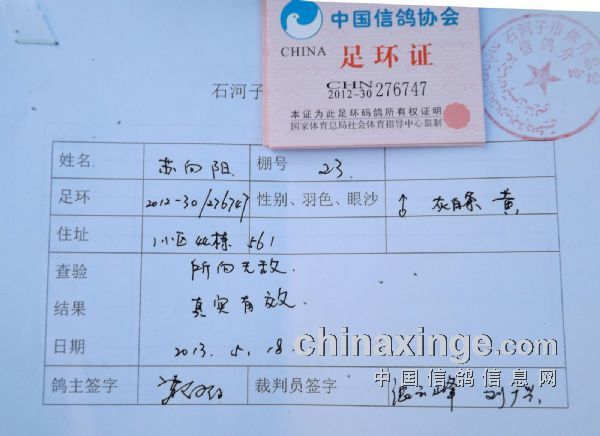 中国信鸽协会
CHINA 足环证
CHN
2012-30 276747
本证为此足环码鸽所有权证明
国家体育总局社会体育指导中心监制
石河子市体育总会
信鸽分会
石河子
姓名 苏向阳 棚号 23
足环 2012-30/276747 性别、羽色、眼沙 ♂ 灰白条 黄
住址 小区44栋 561
查验 所向无敌
结果 真实有效
日期 2013.5.18
鸽主签字 裁判员签字
chinaxinge.com
中国信鸽信息网